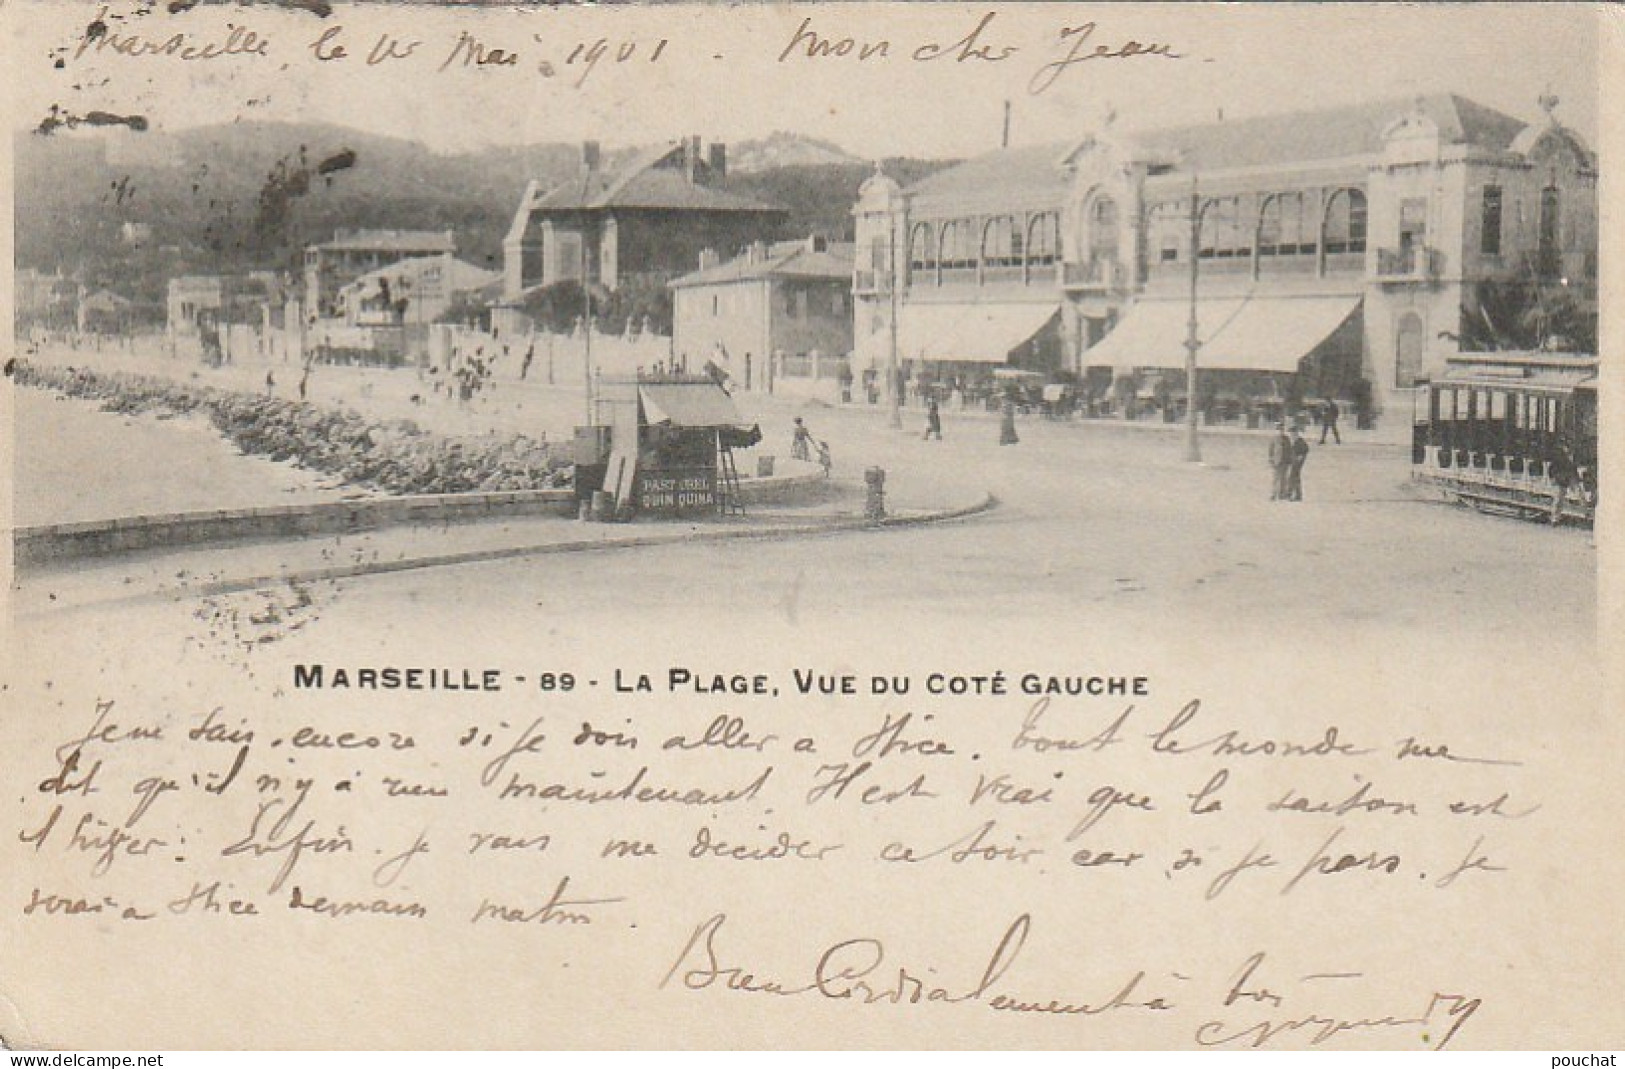 Marseille, le 1er Mai 1901 - Mon cher Jean.
PASTOREL
QUINQUINA
MARSEILLE - 89 - LA PLAGE, VUE DU COTÉ GAUCHE
Je ne sais encore si je dois aller a Nice. Tout le monde me
dit qu'il n'y a rien maintenant. Il est vrai que la saison est
l'hiver. Enfin je vais me décider ce soir car si je pars, je
serai a Nice demain matin.
Bien Cordialement à toi
pouchat
www.delcampe.net